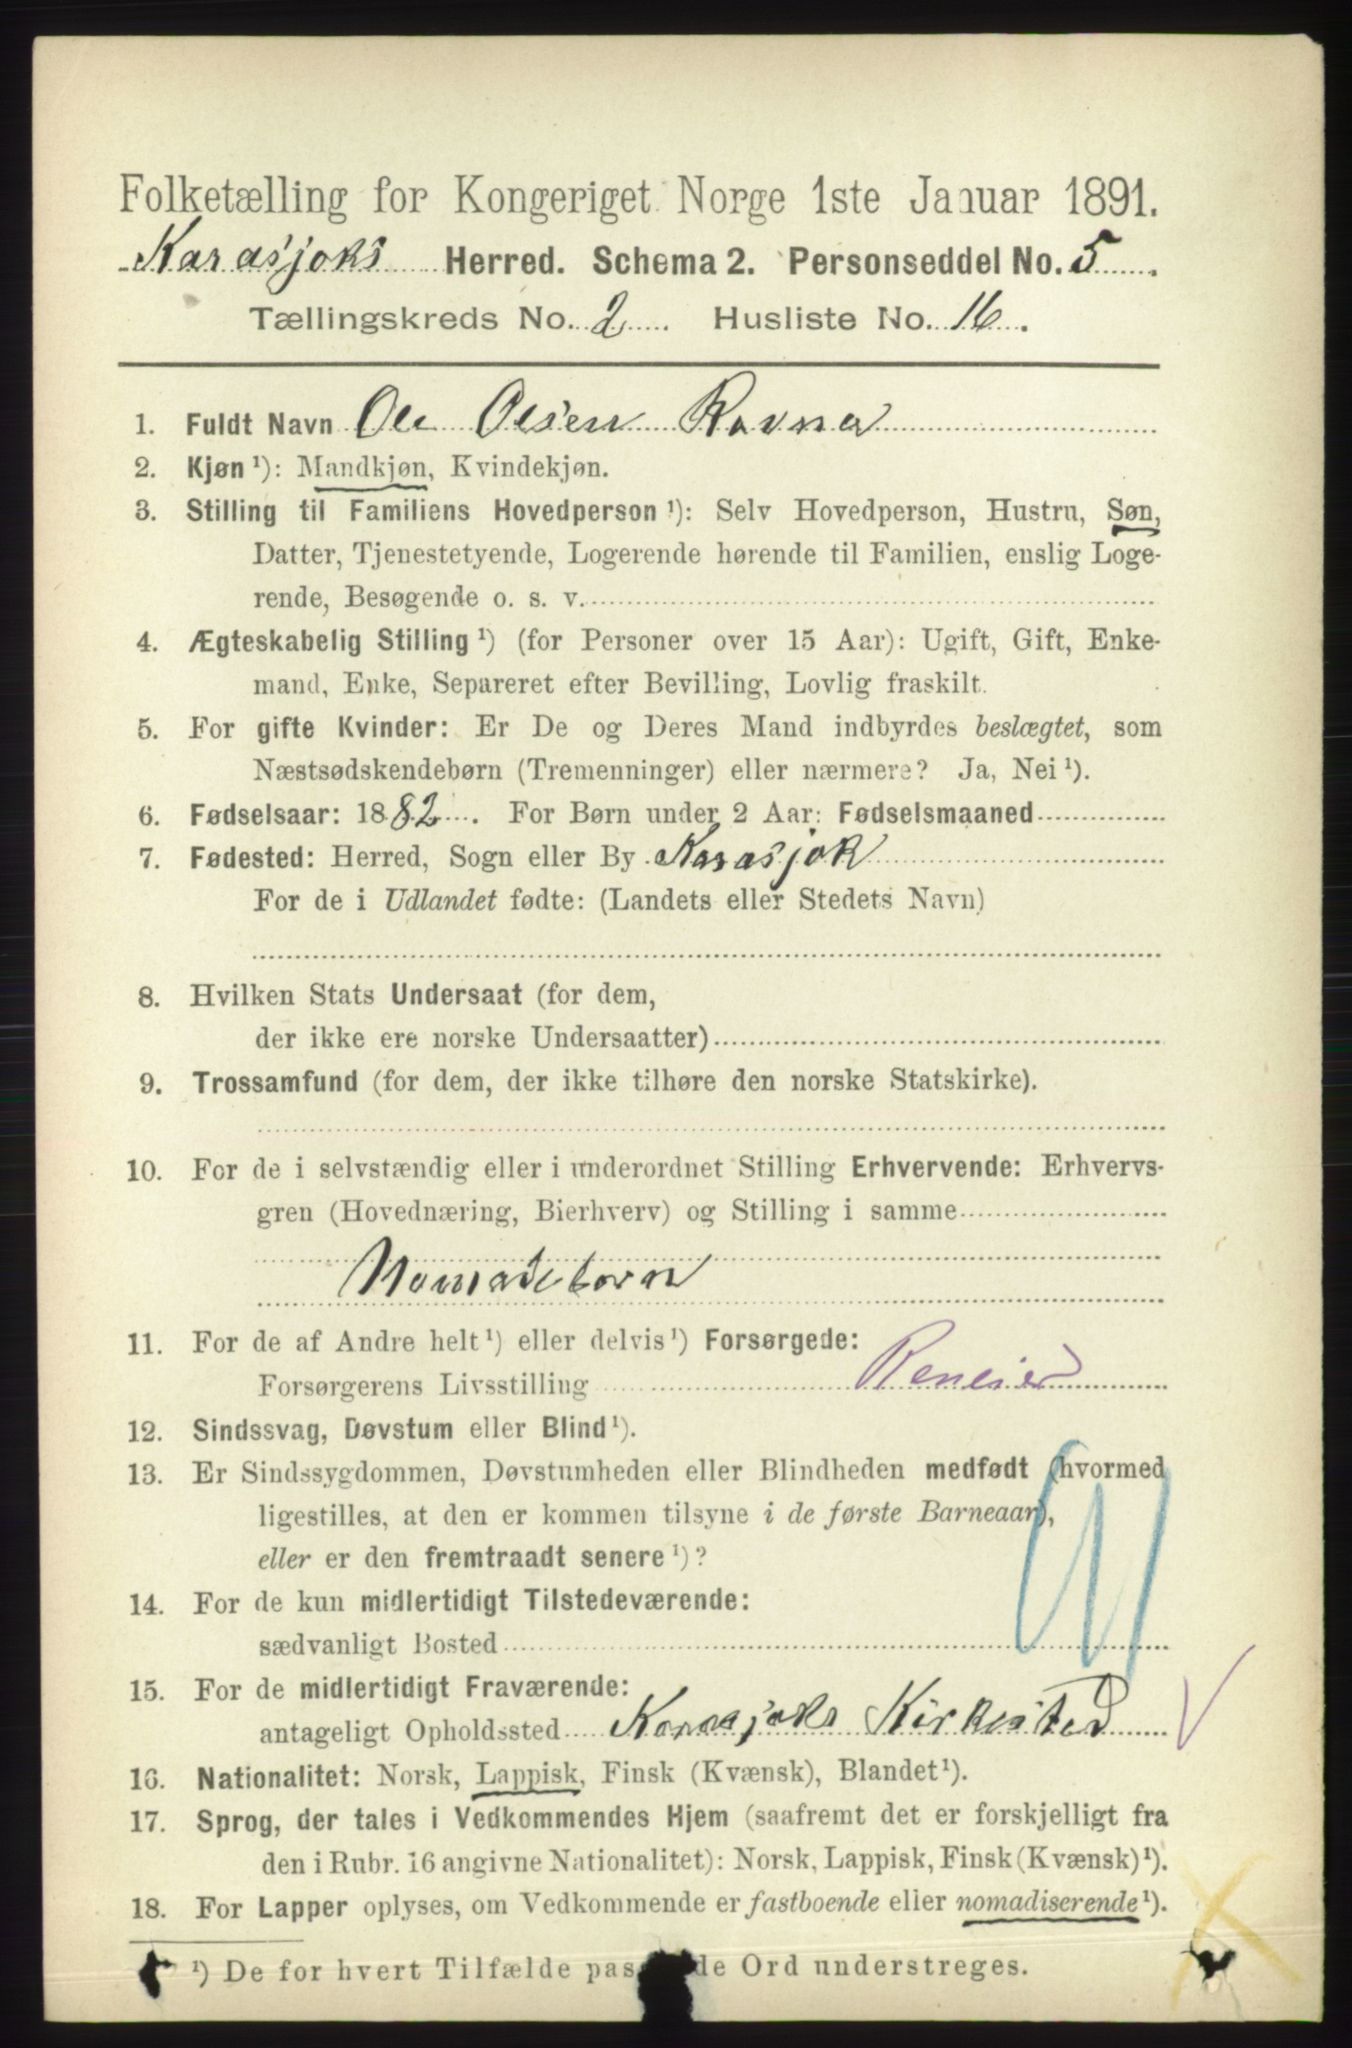 Folketælling for Kongeriget Norge 1ste Januar 1891.
Karasjoks Herred. Schema 2. Personseddel No. 5.
Tællingskreds No. 2. Husliste No. 16.
1. Fuldt Navn Ole Olsen Ravna
2. Kjøn ¹): Mandkjøn, Kvindekjøn.
3. Stilling til Familiens Hovedperson ¹): Selv Hovedperson, Hustru, Søn,
Datter, Tjenestetyende, Logerende hørende til Familien, enslig Loge-
rende, Besøgende o. s. v.
4. Ægteskabelig Stilling ¹) (for Personer over 15 Aar): Ugift, Gift, Enke-
mand, Enke, Separeret efter Bevilling, Lovlig fraskilt.
5. For gifte Kvinder: Er De og Deres Mand indbyrdes beslægtet, som
Næstsødskendebørn (Tremenninger) eller nærmere? Ja, Nei ¹).
6. Fødselsaar: 1882. For Børn under 2 Aar: Fødselsmaaned
7. Fødested: Herred, Sogn eller By Karasjok
For de i Udlandet fødte: (Landets eller Stedets Navn)
8. Hvilken Stats Undersaat (for dem,
der ikke ere norske Undersaatter)
9. Trossamfund (for dem, der ikke tilhøre den norske Statskirke).
10. For de i selvstændig eller i underordnet Stilling Erhvervende: Erhvervs-
gren (Hovednæring, Bierhverv) og Stilling i samme
Nomadebarn
11. For de af Andre helt ¹) eller delvis ¹) Forsørgede:
Forsørgerens Livsstilling Reneier
12. Sindssvag, Døvstum eller Blind ¹).
13. Er Sindssygdommen, Døvstumheden eller Blindheden medfødt (hvormed
ligestilles, at den er kommen tilsyne i de første Barneaar),
eller er den fremtraadt senere ¹)?
14. For de kun midlertidigt Tilstedeværende:
sædvanligt Bosted
15. For de midlertidigt Fraværende:
antageligt Opholdssted Karasjoks Kirkested
16. Nationalitet: Norsk, Lappisk, Finsk (Kvænsk), Blandet ¹).
17. Sprog, der tales i Vedkommendes Hjem (saafremt det er forskjelligt fra
den i Rubr. 16 angivne Nationalitet): Norsk, Lappisk, Finsk (Kvænsk) ¹).
18. For Lapper oplyses, om Vedkommende er fastboende eller nomadiserende ¹).
¹) De for hvert Tilfælde pas de Ord understreges.